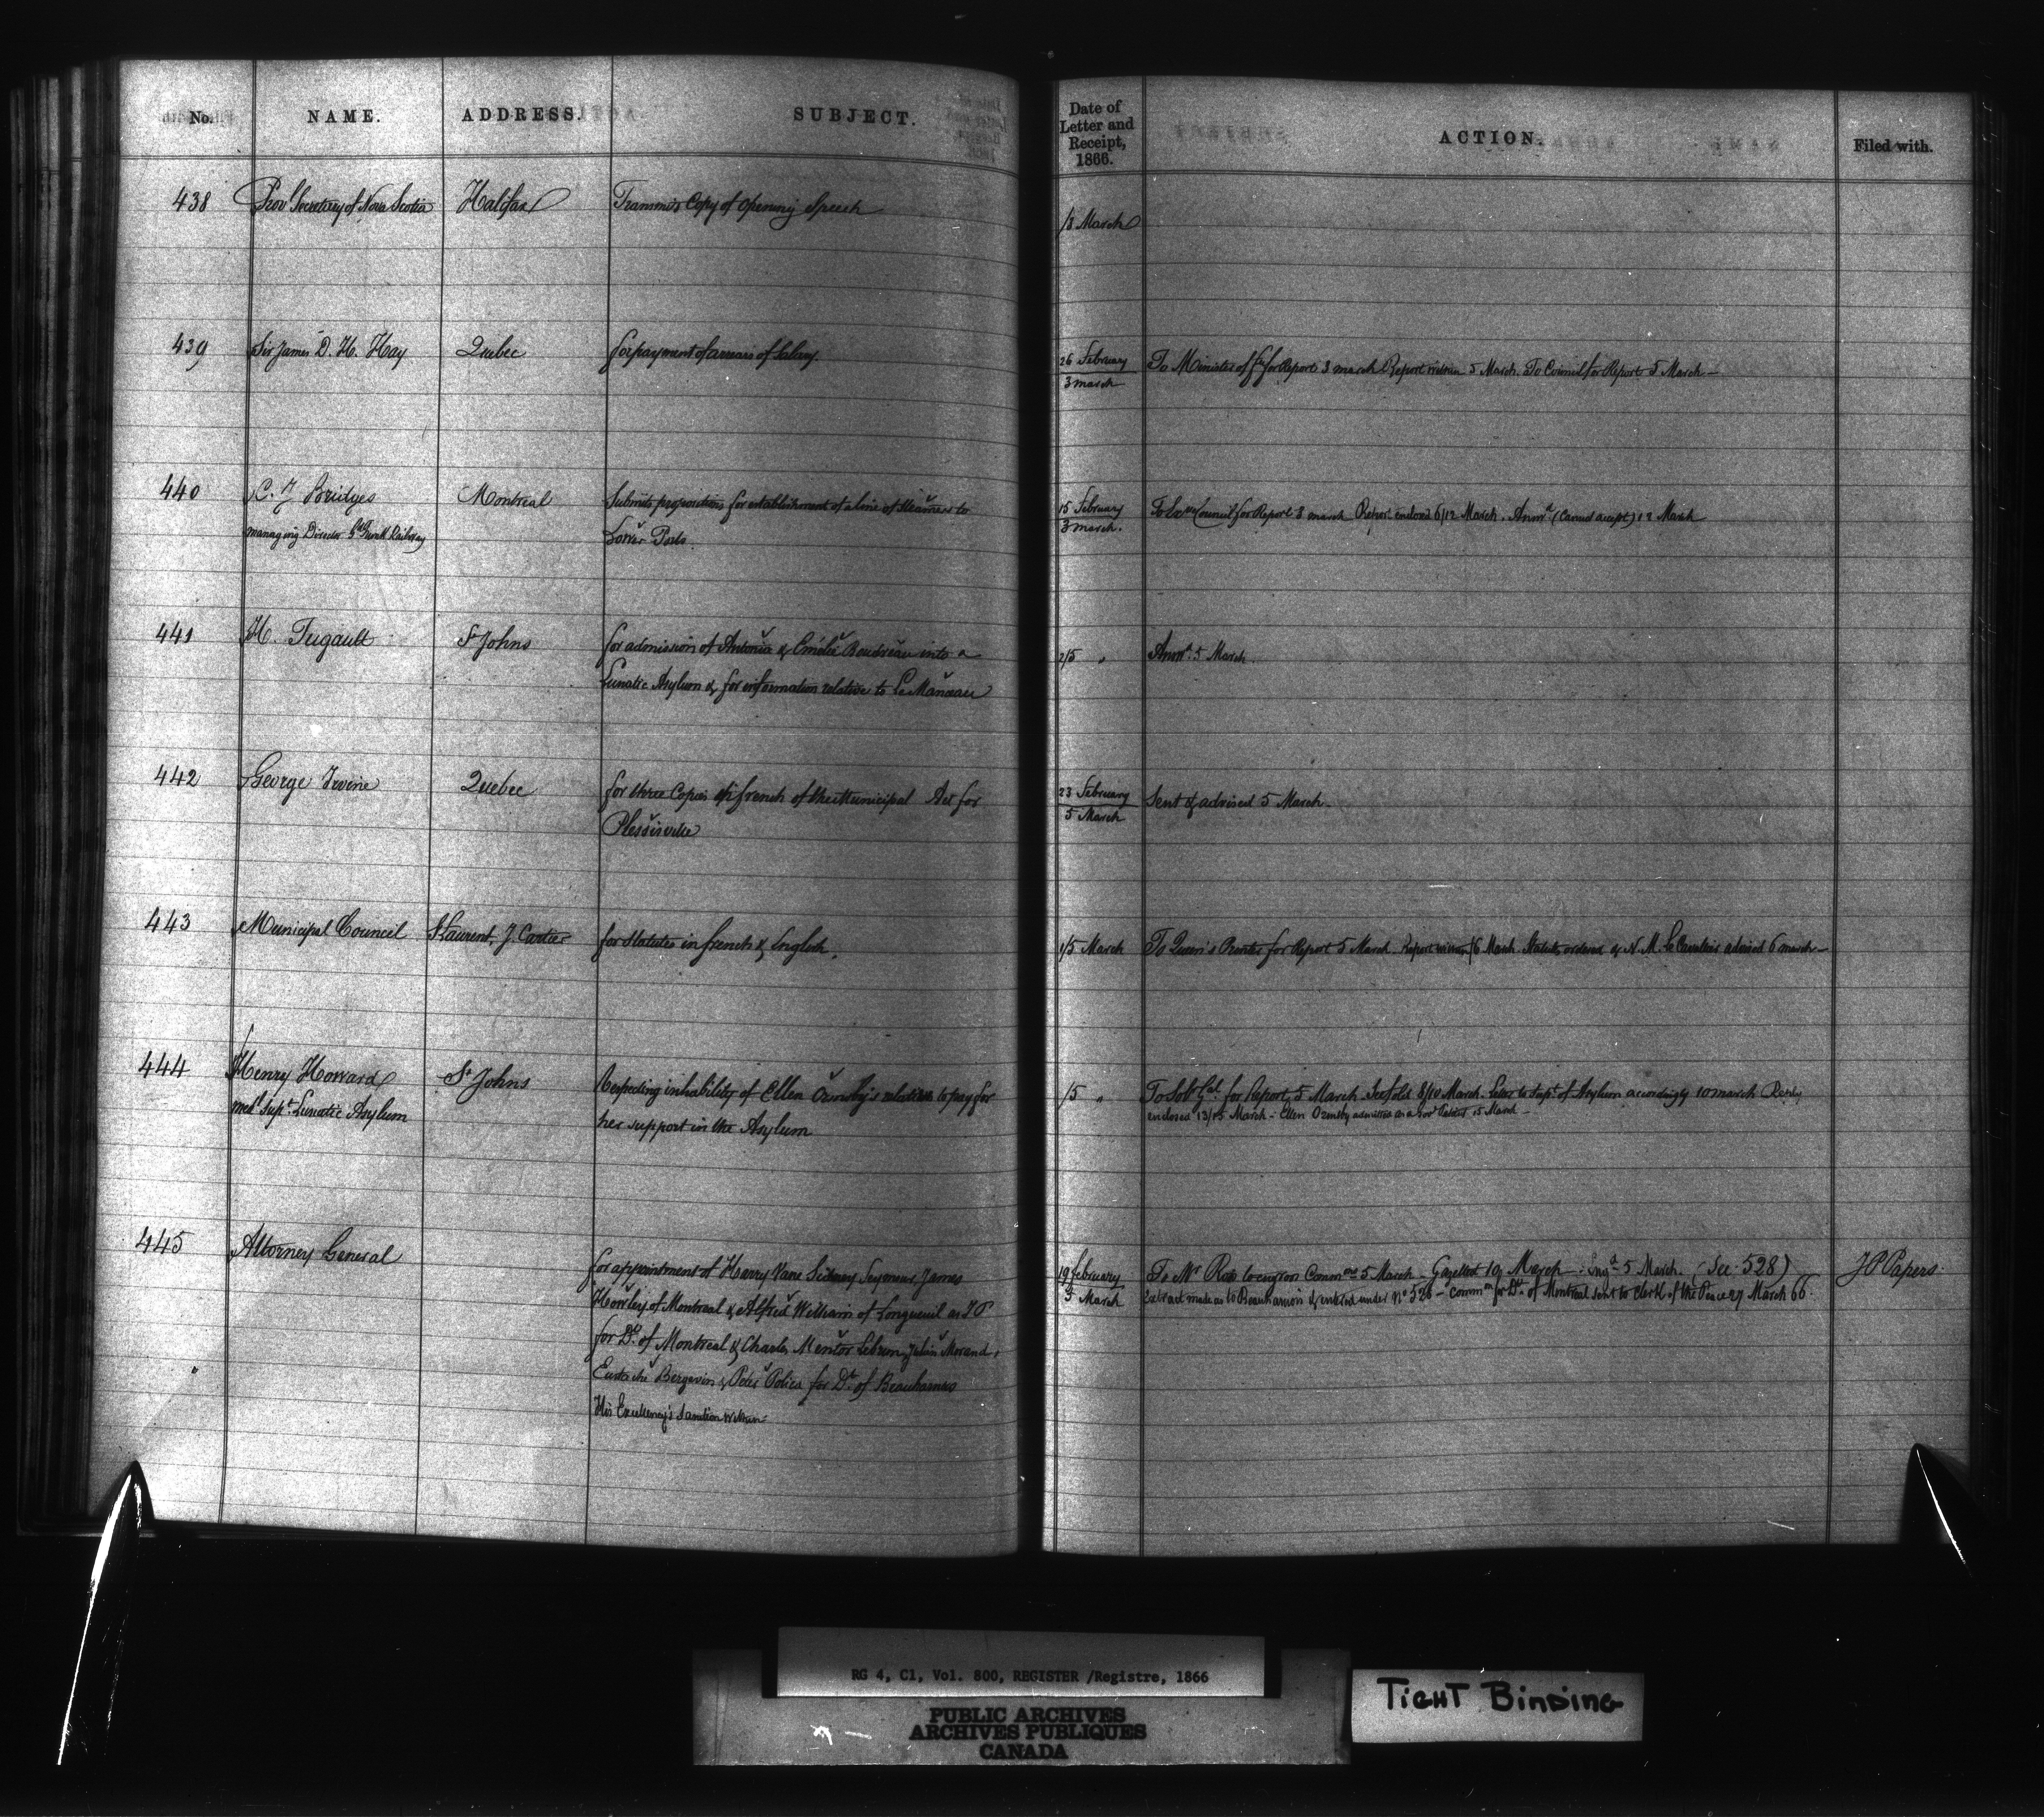 No. NAME. ADDRESS. SUBJECT.
Date of Letter and Receipt, 1866. ACTION. Filed with.
438 Prov Secretary of Nova Scotia Halifax Transmits Copy of opening Speech
/3 March
439 Sir James D. H. Hay Quebec for payment of arrears of Salary.
26 February
3 march
To Minister of for Report 3 march Report within 5 March. To Council for Report 5 March —
440 C. J Bridges Montreal Submits propositions for establishment of a line of Steamers to
managing Director Railway Lower Ports.
15 February
3 march.
To Council for Report 3 march Report enclosed 6/12 March. Answd (Cannot accept) 12 March
441 H. Tugault St Johns for admission of Antonia & Emélie Boudreau into a
Lunatic Asylum & for information relative to
2/5 " Answd. 5 March
442 George Irvine Quebec for three Copies in french of the Municipal Act for
Plessisville
23 February
5 March
Sent & advised 5 March.
443 Municipal Council St Laurent, J. Cartier for Statutes in french & English.
1/5 March To Queen's Printer for Report 5 March. Report within /6 March. Statutes ordered & N. M. Le Cavalier advised 6 march —
444 Henry Howard St Johns Respecting inhability of Ellen Ormsby's relatives to pay for
medl Supt. Lunatic Asylum her support in the Asylum
/5 " To Solr Gl. for Report 5 March. 8/10 March. Letter to Supt. of Asylum accordingly 10 march Reply
enclosed 13/15 March — Ellen Ormsby admitted as a Patient 15 March —
445 Attorney General
for appointment of Harry Vane Sidney Seymour, James
Howley of Montreal & Alfred William of Longueuil as J P
for Dt. of Montreal & Charles Mentor Lebrun, Julien Morand,
Eustache Bergevin & Peter for Dt. of Beauharnois
His Excellency's Sanction within
19 February
5 March
To Mr Ross to engross Commons 5 March — Gazetted 10 March — Engd 5 March. (See 528) J P Papers.
Extract made as to Beauharnois & entered under No 528 — Commn for Dt. of Montreal sent to Clerk of the Peace 27 March 66.
RG 4, C1, Vol. 800, REGISTER /Registre, 1866
PUBLIC ARCHIVES
ARCHIVES PUBLIQUES
CANADA
TIGHT BINDING